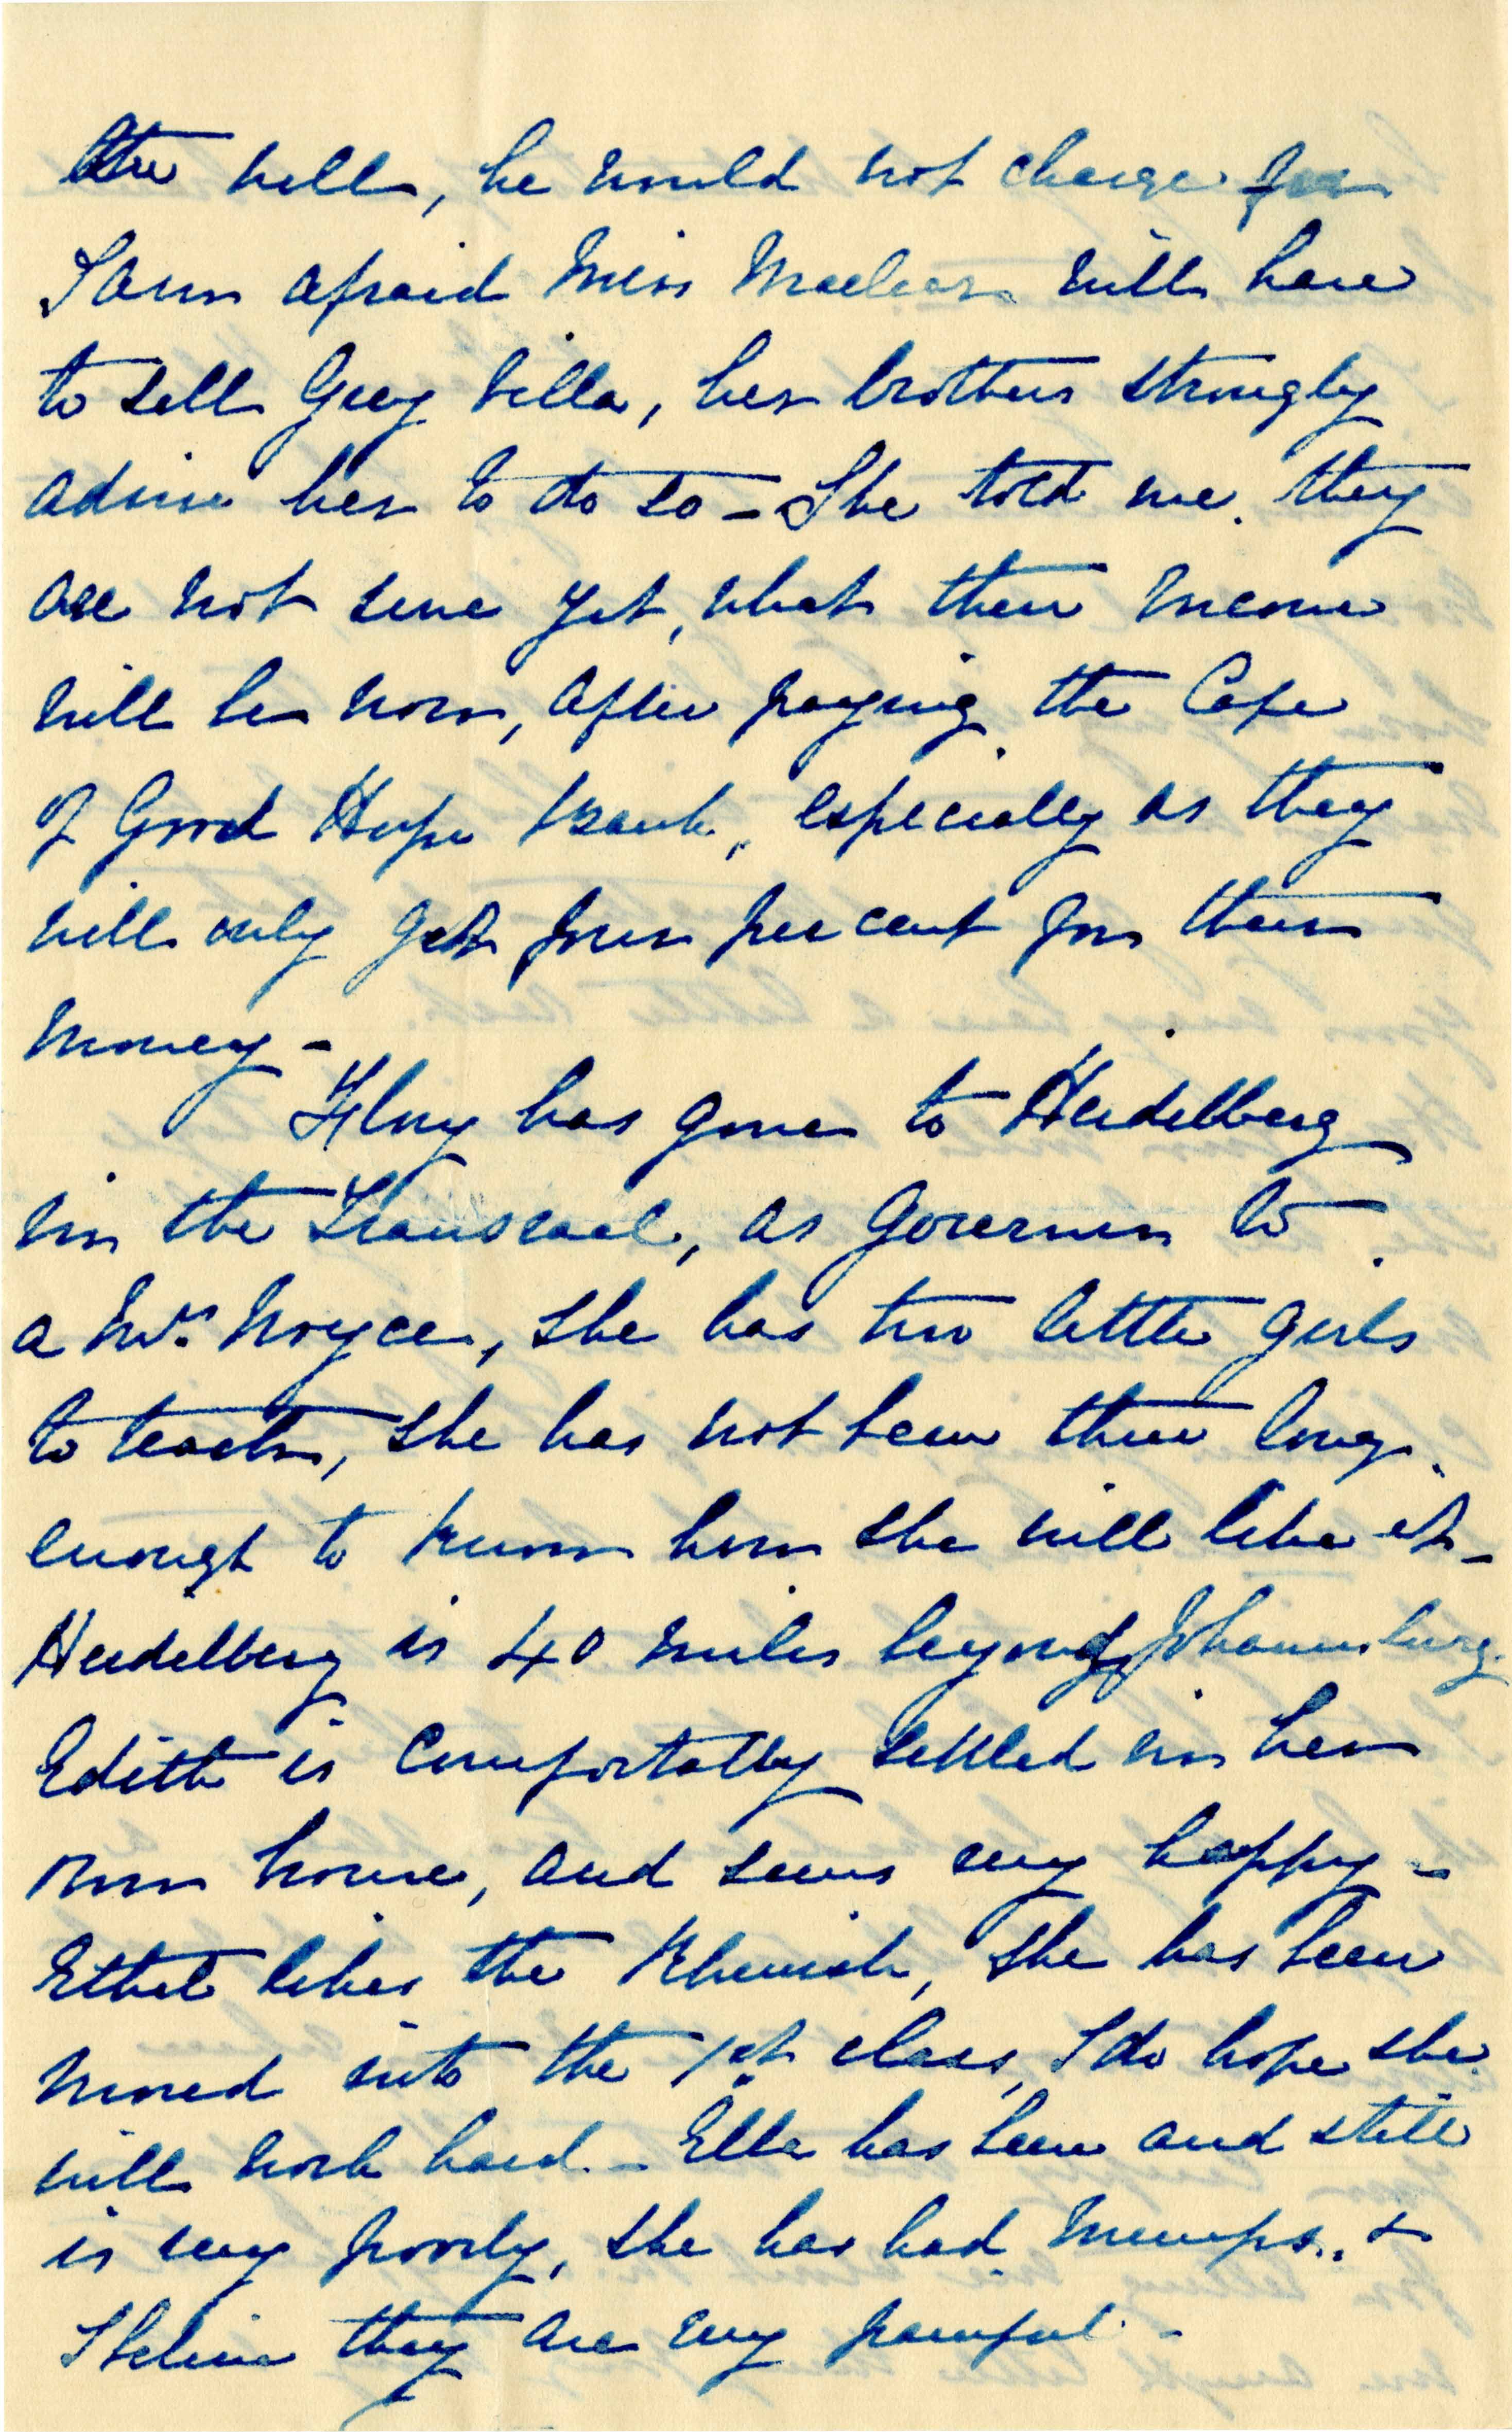 the bill, he would not charge for
I am afraid Miss Maclear will have
to sell Grey Villa, her brothers strongly
advise her to do so - She told me they
are not sure yet, what their income
will be now, after paying the Cape
of Good Hope Bank, especially as they
will only get four per cent for their
money -
Flory has gone to Heidelberg
in the Transvaal, as governess to
a Mrs. Noyce, she has two little girls
to teach, she has not been there long
enough to know how she will like it -
Heidelberg is 40 miles beyond Johannesburg.
Edith is comfortably settled in her
own house, and seems very happy -
Ethel likes the Rhenish, she has been
moved into the 1st class, I do hope she
will work hard. - Ella has been and still
is very poorly, she has had mumps, &
I believe they are very painful -